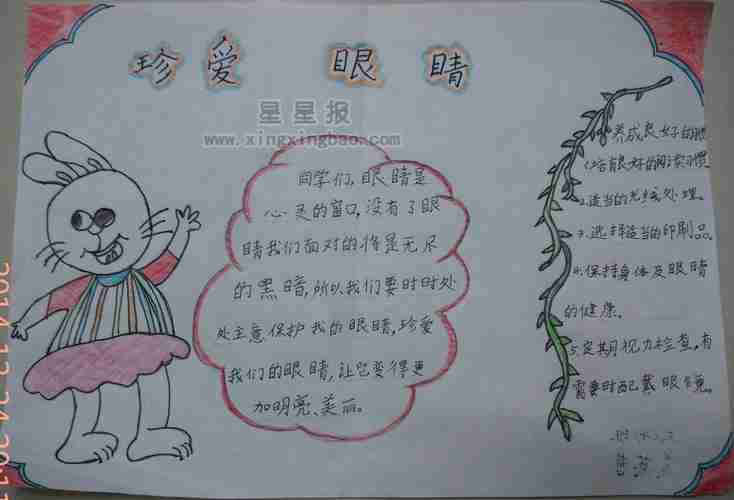 珍爱 眼睛
星星报
www.xingxingbao.com
同学们,眼睛是
心灵的窗口,没有了眼
睛我们面对的将是无尽
的黑暗,所以我们要时时处
处主意保护我的眼睛,珍爱
我们的眼睛,让它变得更
加明亮、美丽。
养成良好的
1.培良好的阅读习惯
2.适当的光线处理。
3.选择适当的印刷品。
4.保持身体及眼睛
的健康。
5.定期视力检查,有
需要时配戴眼镜。